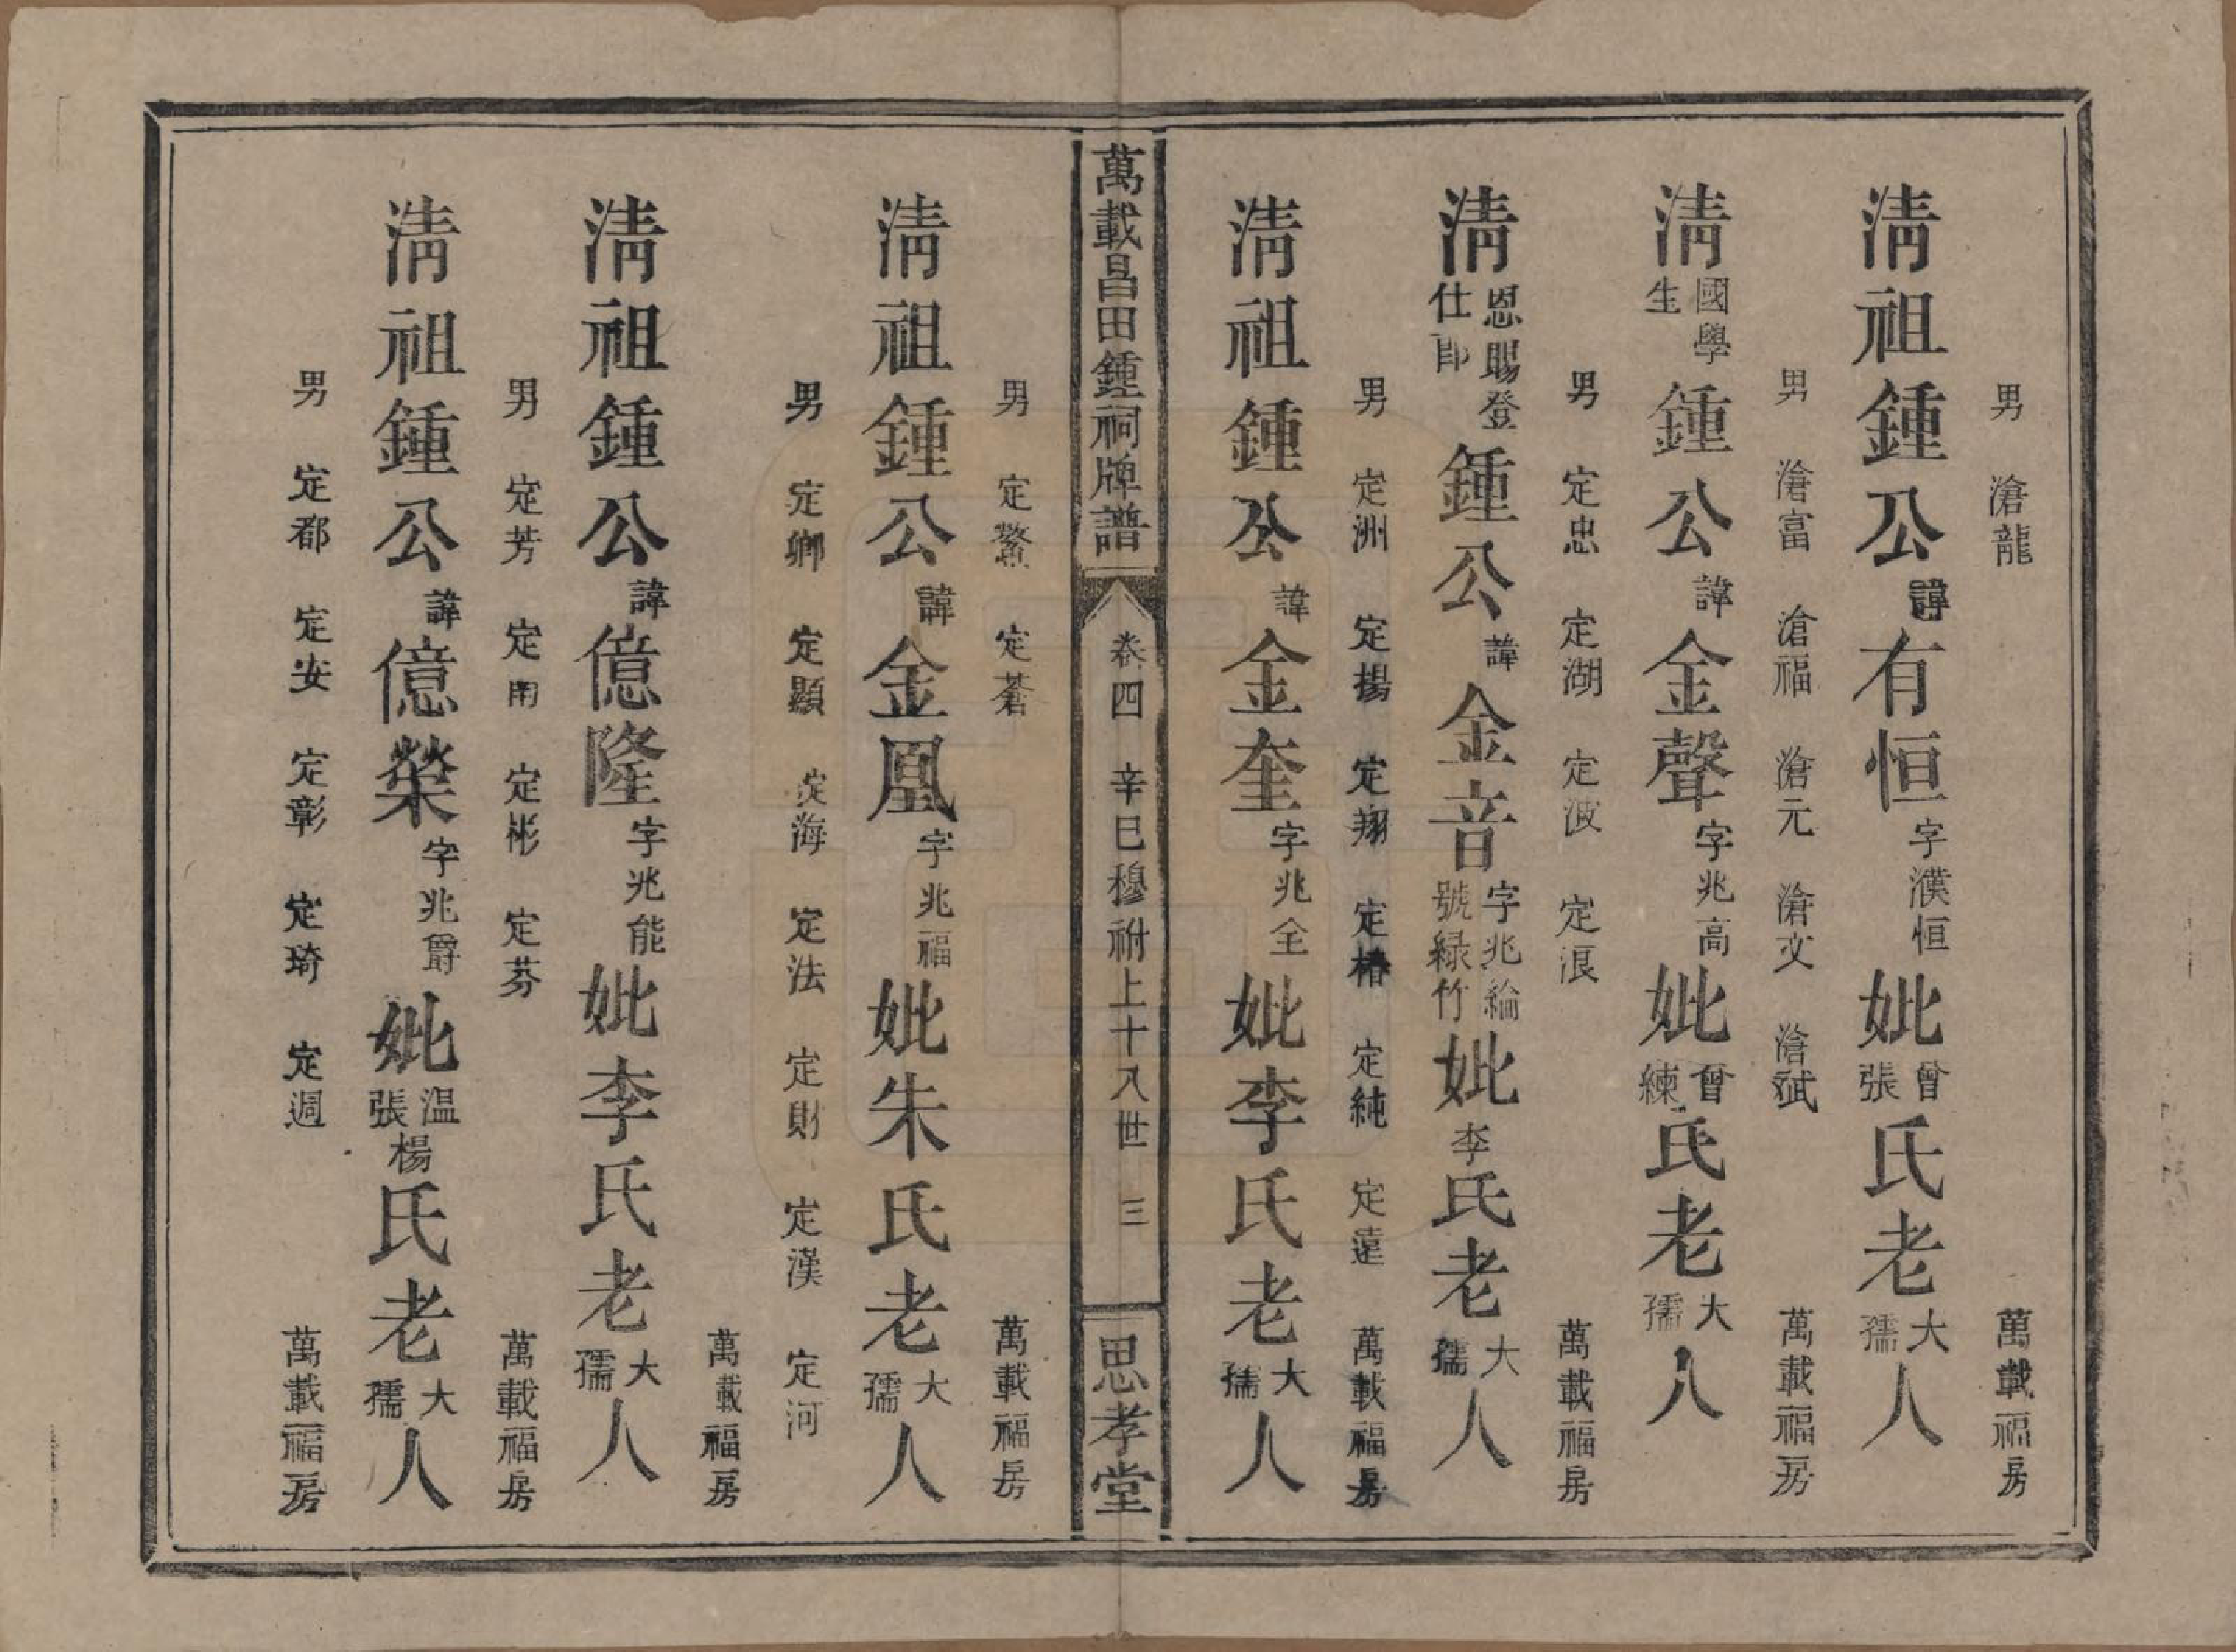 男 滄龍 萬載福房
清祖鍾公諱有恒字濮恒妣曾張氏老大孺人
男 滄富 滄福 滄元 滄文 滄斌 萬載福房
清國學生鍾公諱金聲字兆高妣曾練氏老大孺人
男 定忠 定湖 定波 定浪 萬載福房
清恩賜登仕郎鍾公諱金音字兆綸號緑竹妣李氏老大孺人
男 定洲 定揚 定翔 定椿 定純 定遠 萬載福房
清祖鍾公諱金奎字兆全妣李氏老大孺人
萬載昌田鍾祠牌譜 卷四 辛巳穆祔上十八世 三 思孝堂
男 定鰲 定蒼 萬載福房
清祖鍾公諱金凰字兆福妣朱氏老大孺人
男 定鄉 定顯 定海 定法 定財 定漢 定河
萬載福房
清祖鍾公諱億隆字兆能妣李氏老大孺人
男 定芳 定南 定彬 定芬 萬載福房
清祖鍾公諱億榮字兆爵妣温張楊氏老大孺人
男 定都 定安 定彰 定琦 定週 萬載福房